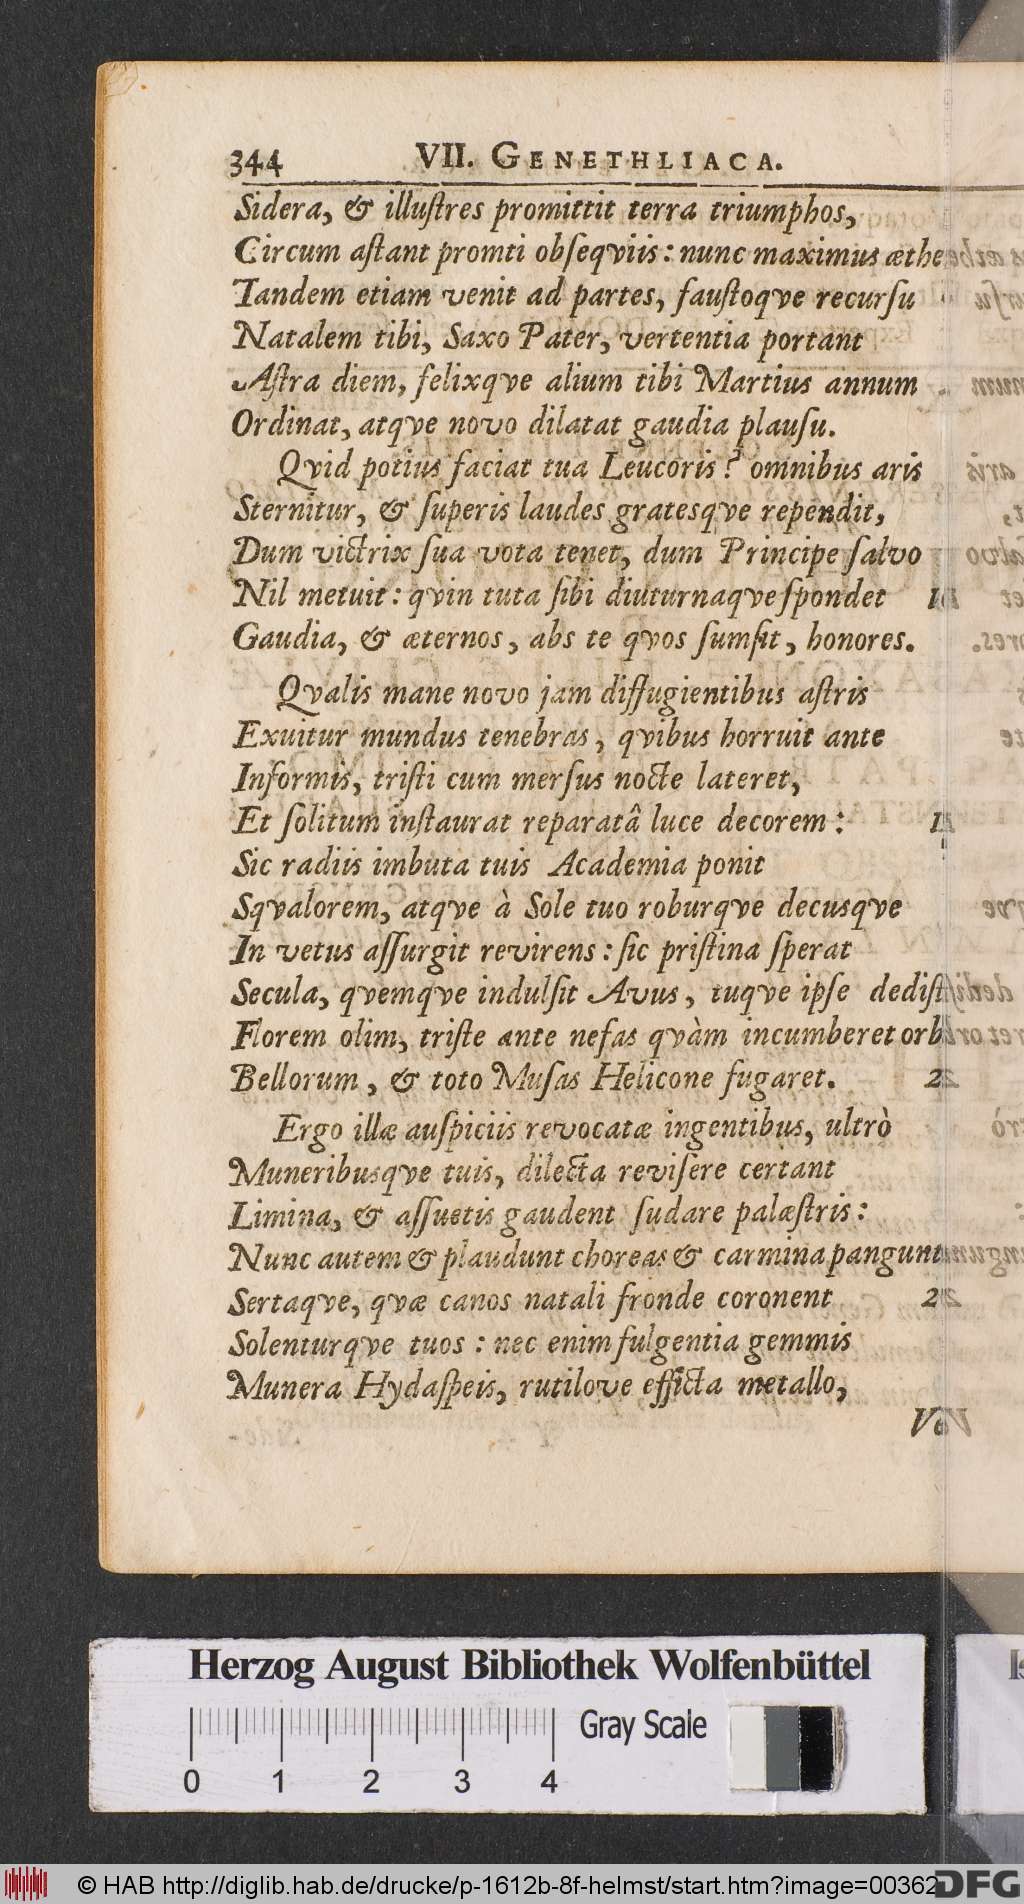 344 VII. GENETHLIACA.
Sidera, & illuſtres promittit terra triumphos,
Circum aſtant promti obſeqviis: nunc maximus æthe
Tandem etiam venit ad partes, fauſtoqve recurſu
Natalem tibi, Saxo Pater, vertentia portant
Aſtra diem, felixqve alium tibi Martius annum
Ordinat, atqve novo dilatat gaudia plauſu.
Qvid potius faciat tua Leucoris? omnibus aris
Sternitur, & ſuperis laudes gratesqve rependit,
Dum victrix ſua vota tenet, dum Principe ſalvo
Nil metuit: qvin tuta ſibi diuturnaqve ſpondet
Gaudia, & æternos, abs te qvos ſumſit, honores.
Qvalis mane novo jam diffugientibus aſtris
Exuitur mundus tenebras, qvibus horruit ante
Informis, triſti cum merſus nocte lateret,
Et ſolitum inſtaurat reparatâ luce decorem:
Sic radiis imbuta tuis Academia ponit
Sqvalorem, atqve à Sole tuo roburqve decusqve
In vetus aſſurgit revirens: ſic priſtina ſperat
Secula, qvemqve indulſit Avus, tuqve ipſe dediſt
Florem olim, triſte ante nefas qvàm incumberet orb
Bellorum, & toto Muſas Helicone fugaret. 2
Ergo illæ auſpiciis revocatæ ingentibus, ultrò
Muneribusqve tuis, dilecta reviſere certant
Limina, & aſſuetis gaudent ſudare palæſtris:
Nunc autem & plaudunt choreas & carmina pangunt
Sertaqve, qvæ canos natali fronde coronent 2
Solenturqve tuos: nec enim fulgentia gemmis
Munera Hydaſpeis, rutilove efficta metallo,
Herzog August Bibliothek Wolfenbüttel
Gray Scale
0 1 2 3 4
© HAB http://diglib.hab.de/drucke/p-1612b-8f-helmst/start.htm?image=00362
DFG